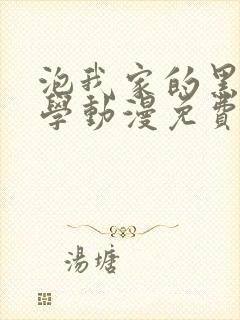 泡我家的黑
學動漫免費
湯塘